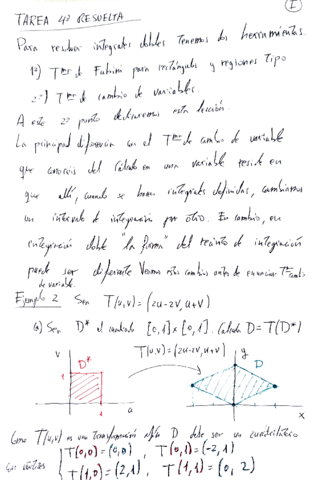 I
TAREA 4ª RESUELTA
Para resolver integrales dobles tenemos dos herramientas.
1º) Tma de Fubini para rectángulos y regiones tipo
2º) Tma de cambio de variables.
A este 2º punto dedicaremos esta lección.
La principal diferencia con el Tma de cambio de variable
que conocéis del Cálculo en una variable reside en
que allí, cuando se hacen integrales definidas, cambiamos
un intervalo de integración por otro. En cambio, en
integración doble "la forma" del recinto de integración
puede ser diferente Veamos estos cambios antes de enunciar Tma cambio
de variable.
Ejemplo 2 Sea T(u,v) = (2u-2v, u+v)
a) Sea D* el cuadrado [0,1]x[0,1]. Calcula D = T(D*)
T(u,v) = (2u-2v, u+v)
v
D*
1
1
u
y
D
x
Como T(u,v) es una transformación afín D debe ser un cuadrilátero
con vértices
T(0,0) = (0,0), T(0,1) = (-2,1)
T(1,0) = (2,1), T(1,1) = (0,2)